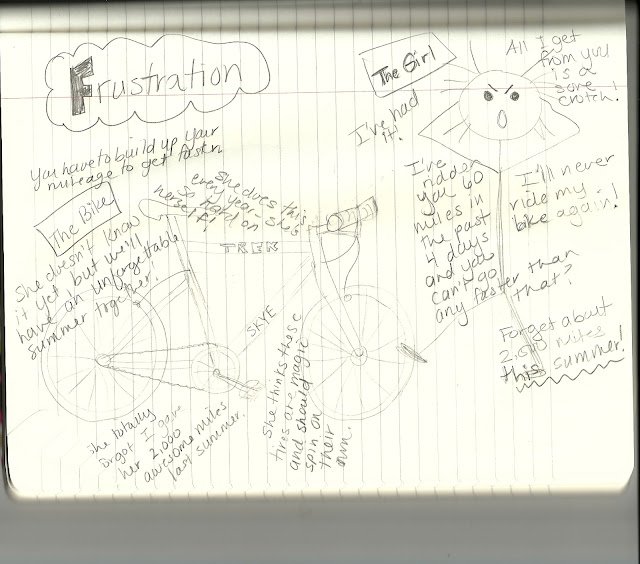 Frustration
The Girl
All I get
from you
is a
sore
crotch!
I've had
it!
You have to build up your
mileage to get faster.
The Bike
She does this
every year-she's
so hard on
herself!
She doesn't know
it yet but we'll
have an unforgettable
summer together!
TREK
SKYE
I've
ridden
you 60
miles in
the past
4 days
and you
can't go
any faster than
that?
I'll never
ride my
bike again!
Forget about
2,500 miles
this summer!
She totally
forgot I gave
her 2,000
awesome miles
last summer.
She thinks these
tires are magic
and should
spin on
their
own.